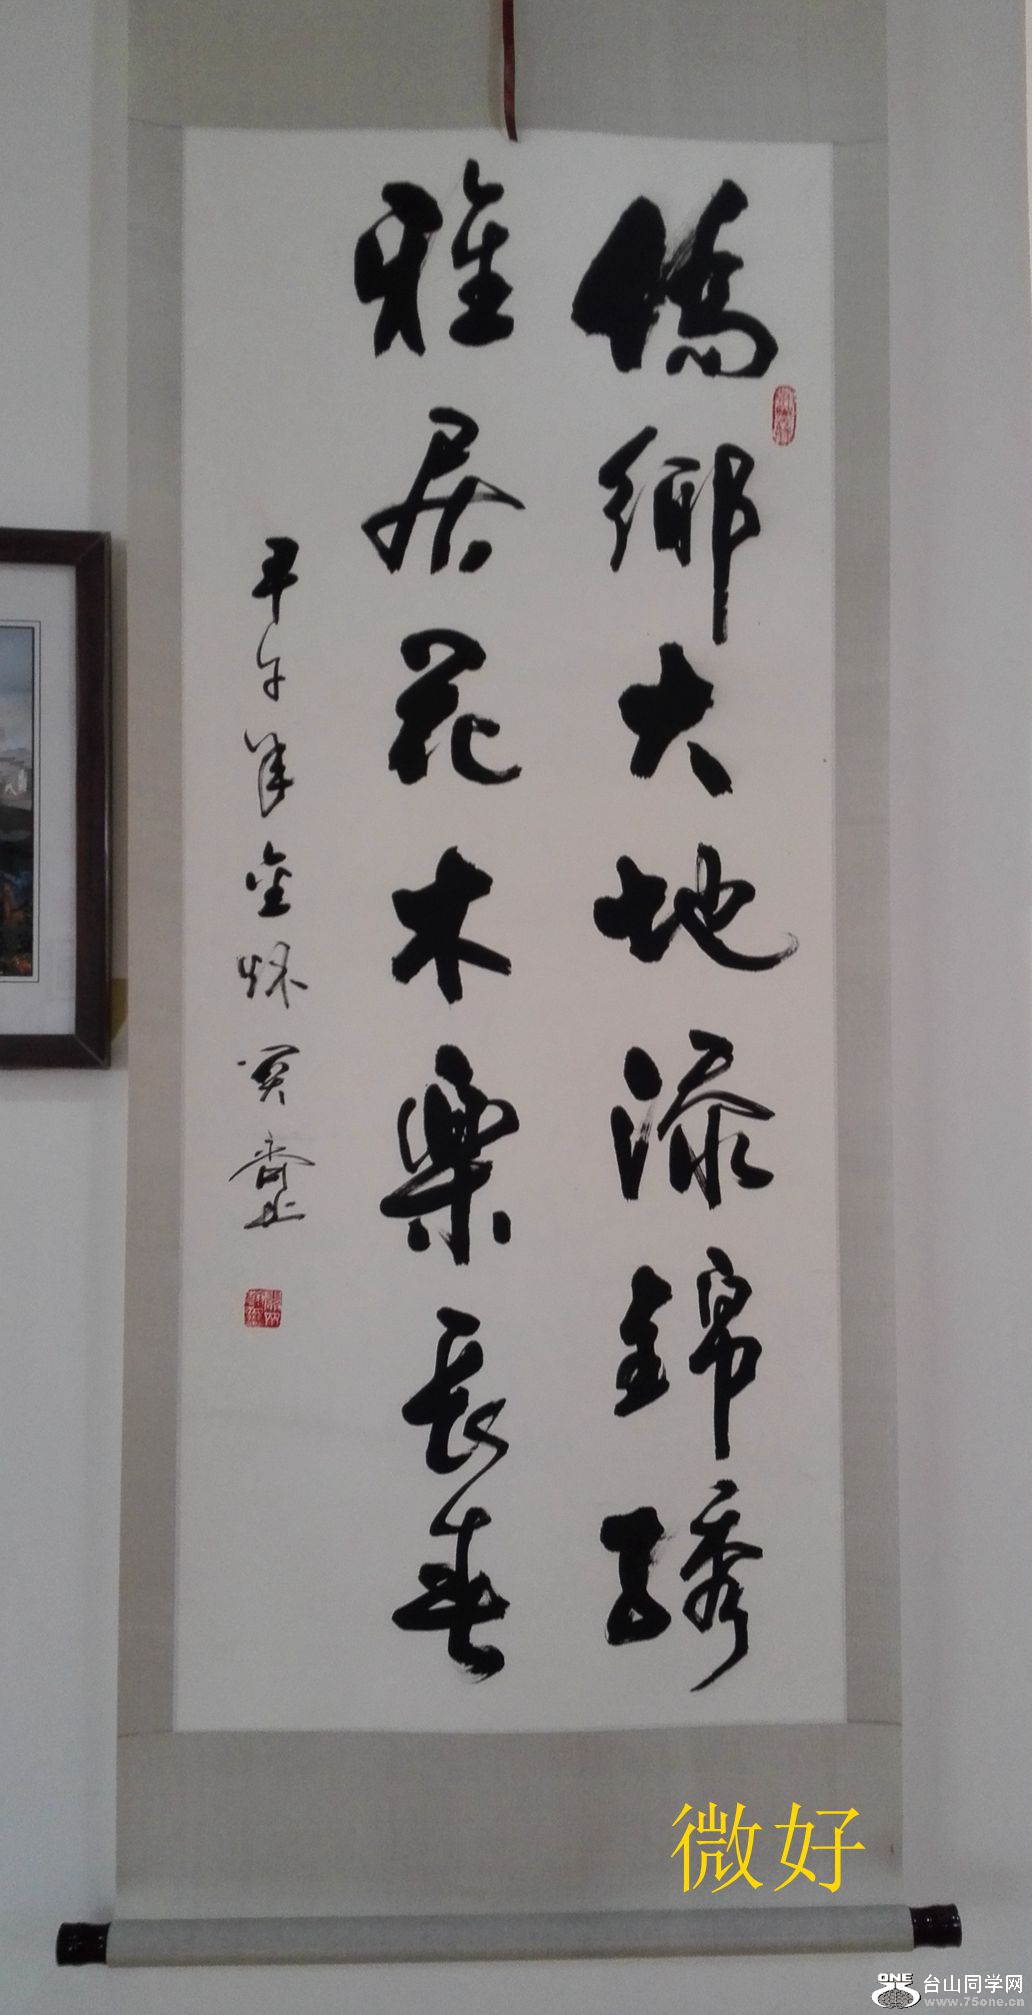 僑鄉大地添錦繡
雅居花木樂長春
甲午年
微好
ONE
台山同学网
www.75one.cn